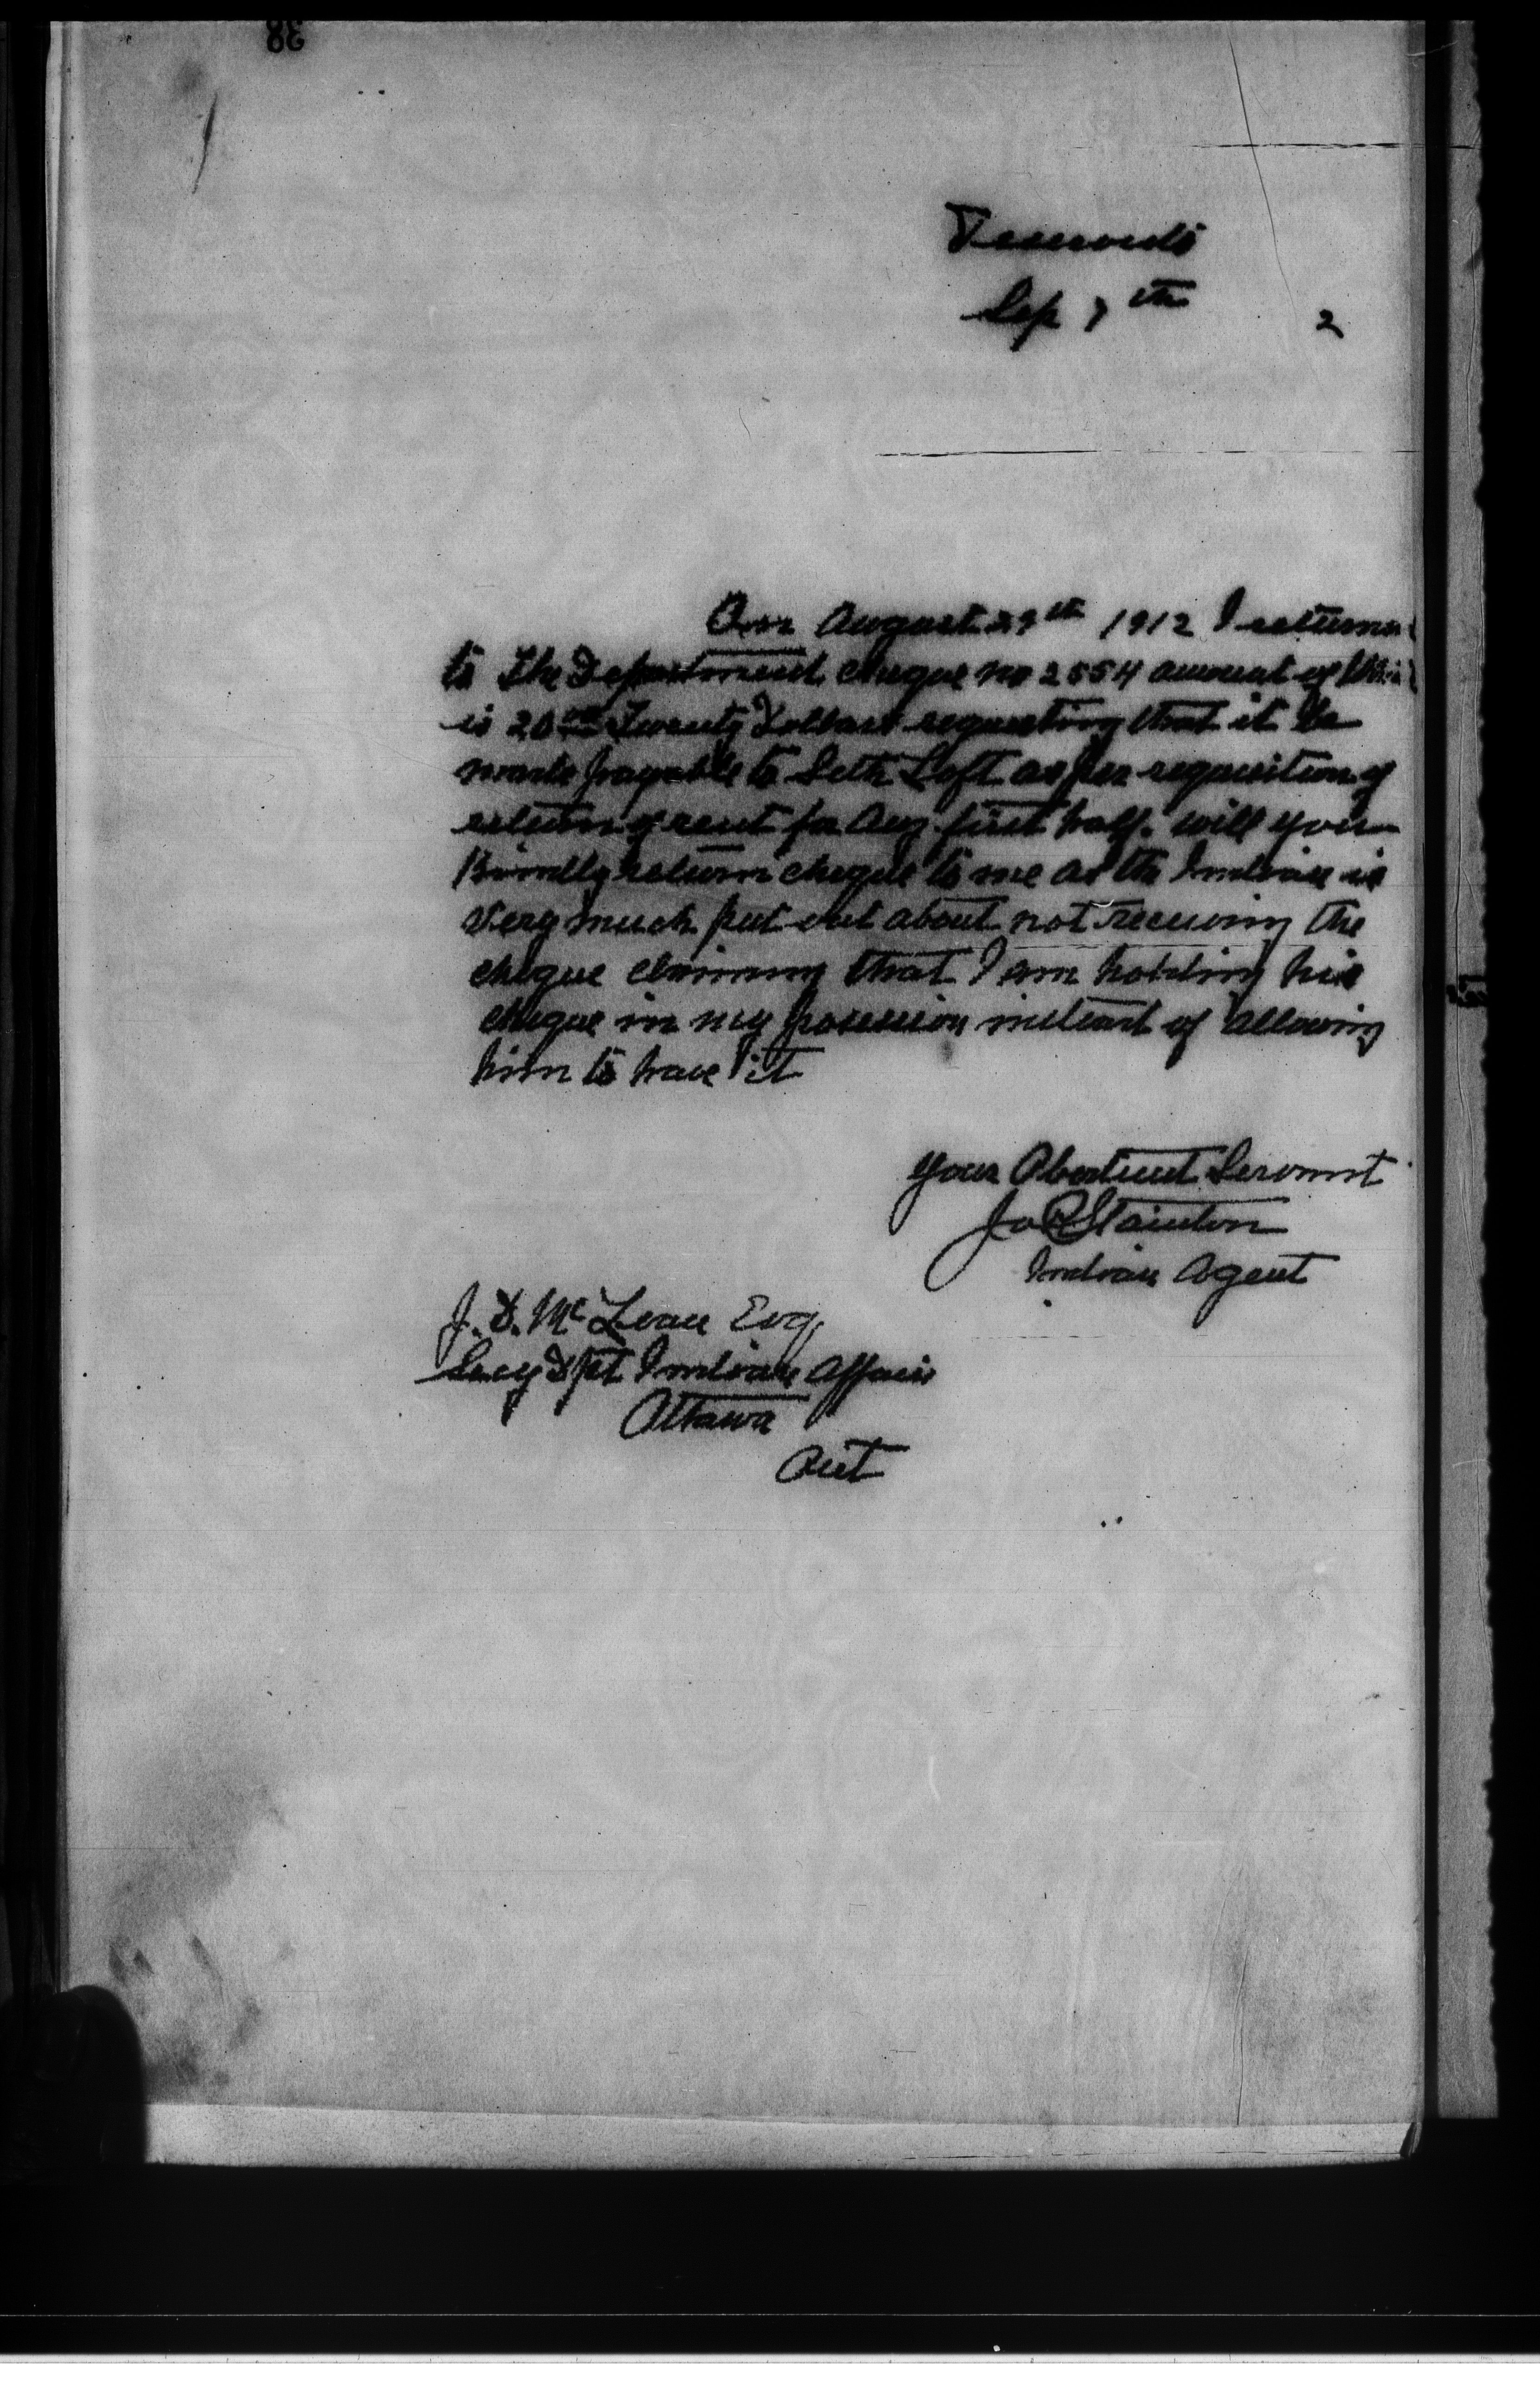 38
Deseronto
Sep 7th 2
On August 29th 1912 I returned
to The Department cheque no 2554 amount of which
is 20 Twenty Dollars requesting that it be
made payable to Seth Loft as per requisition of
return of rent for Aug first half. will you
Kindly return cheque to me as the Indian is
very much put out about not receiving the
cheque claiming that I am holding his
cheque in my possession instead of allowing
him to have it
your Obedient Servant
Jo R Stainton
Indian Agent
J. D. McLean Esq.
Secy Dpt Indian Affairs
Ottawa
Ont